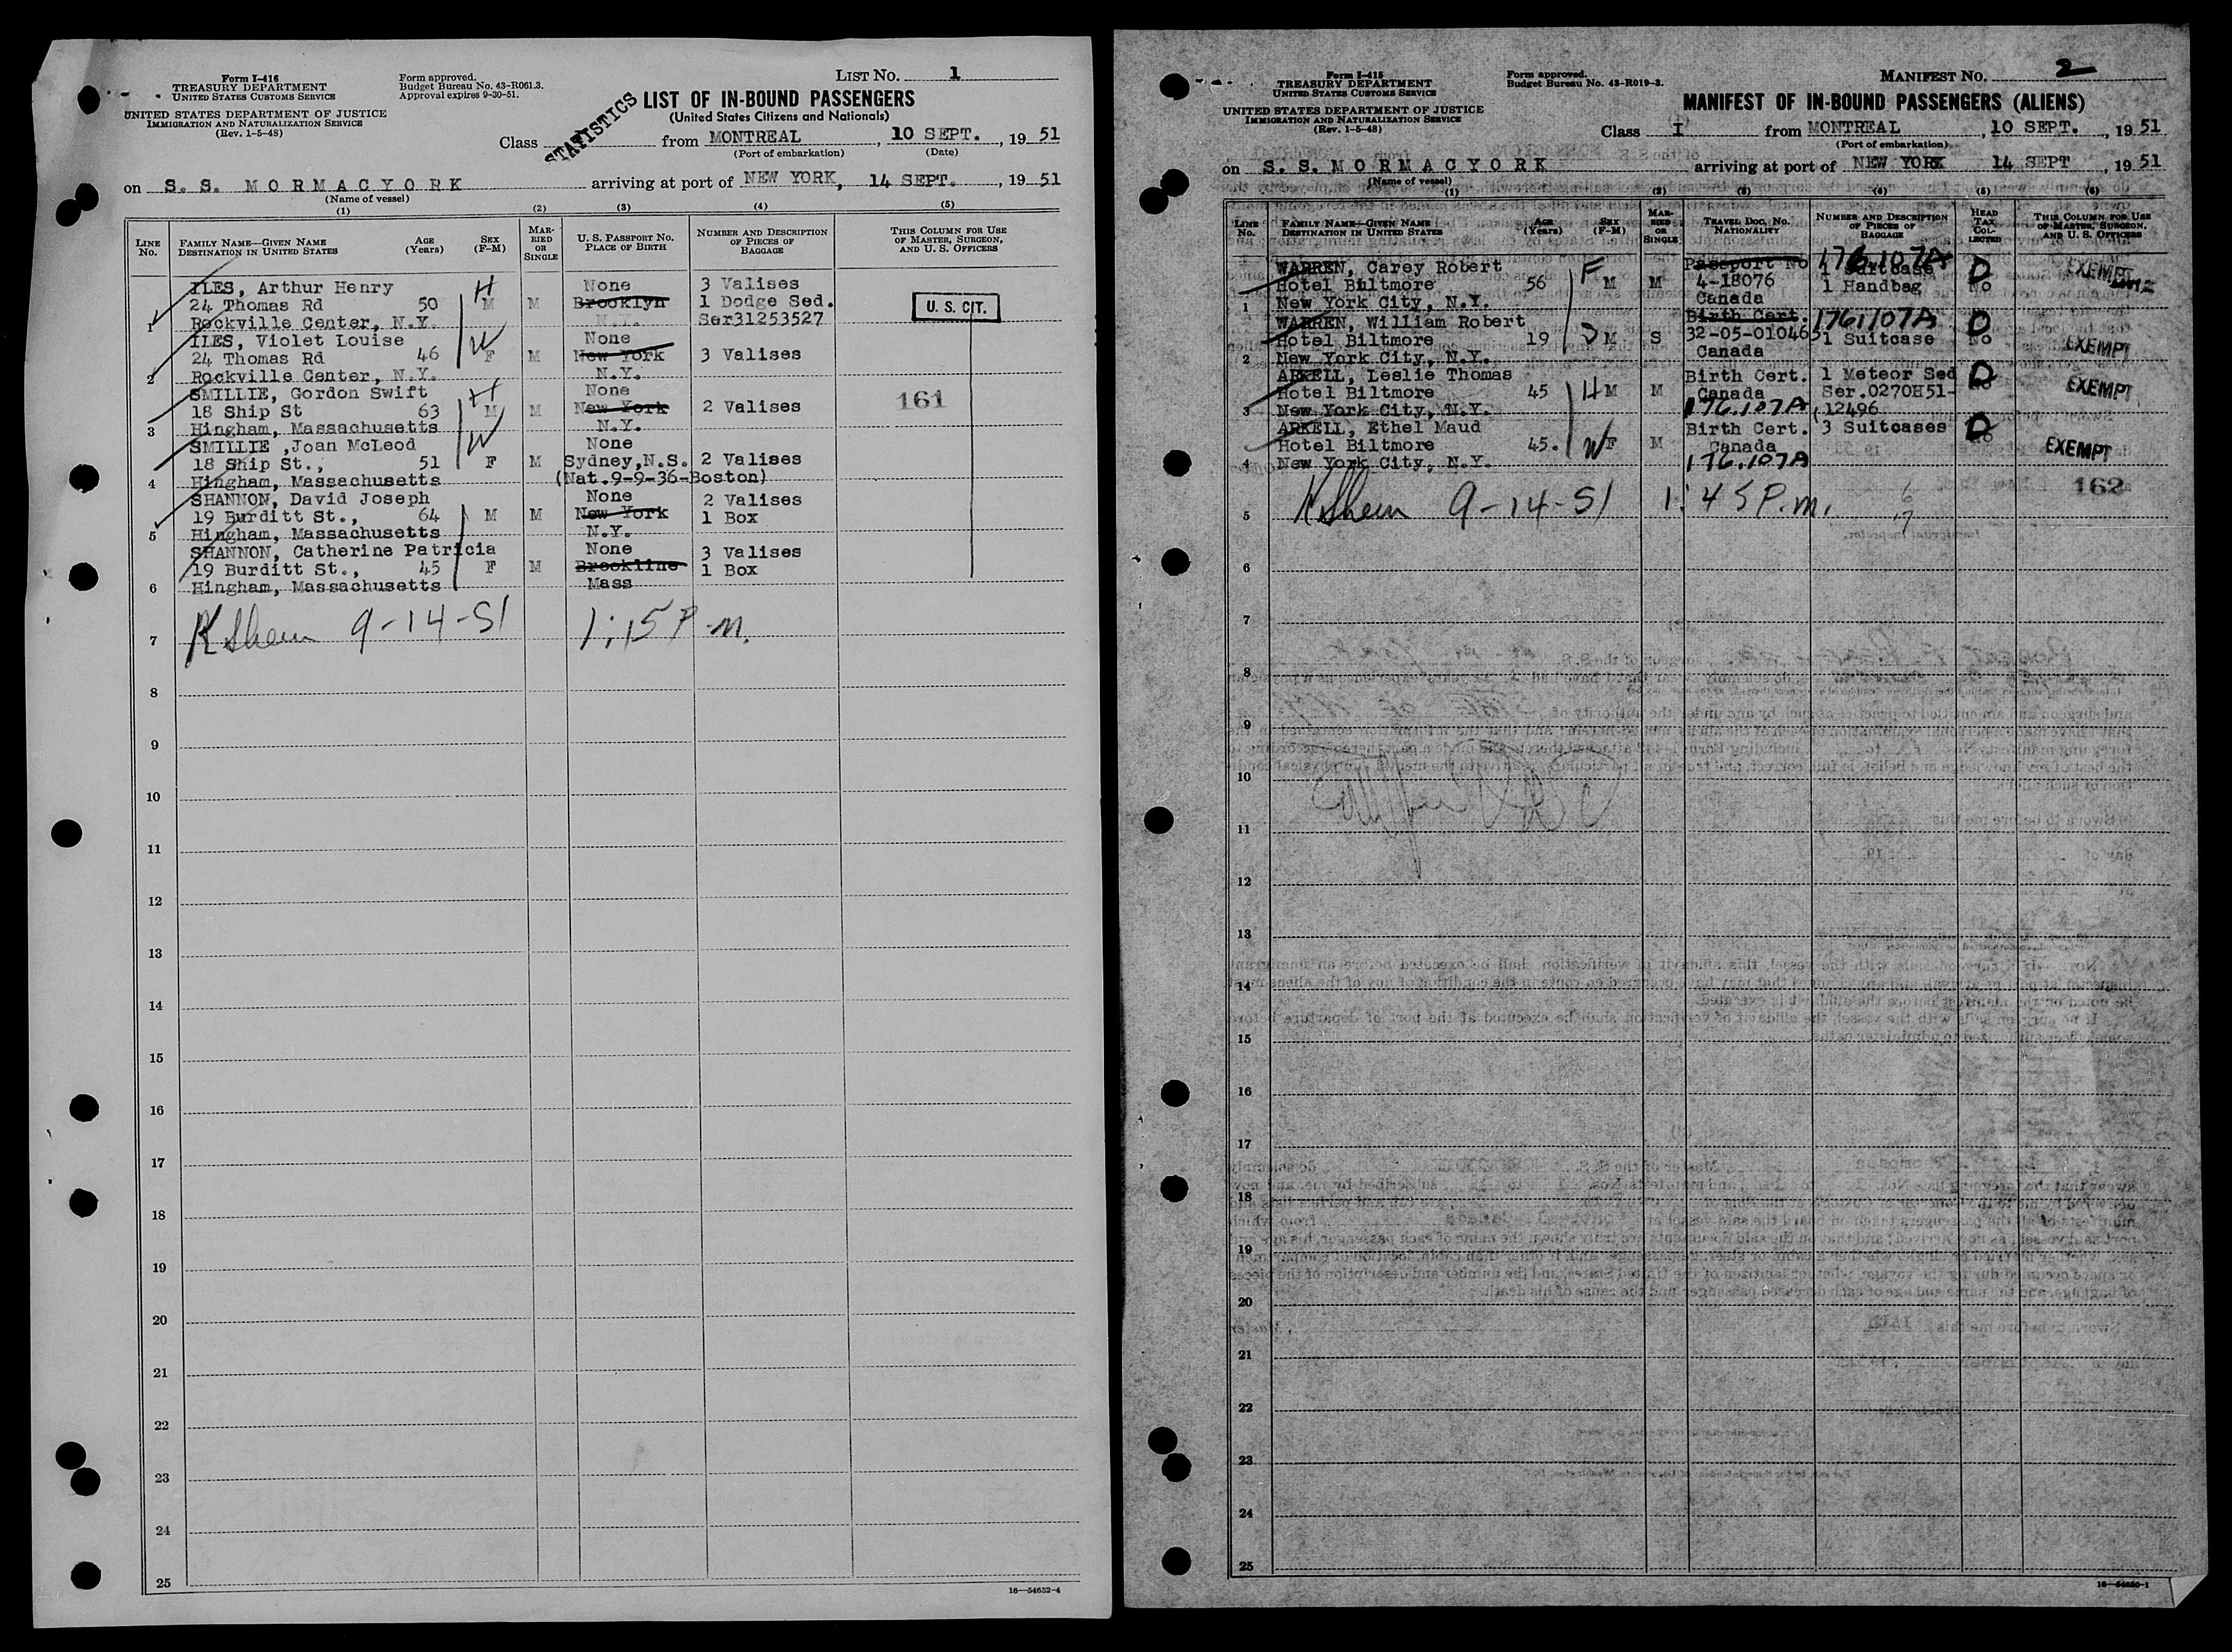 Form I-416
TREASURY DEPARTMENT
UNITED STATES CUSTOMS SERVICE
UNITED STATES DEPARTMENT OF JUSTICE
IMMIGRATION AND NATURALIZATION SERVICE
(Rev. 1-5-48)
Form approved.
Budget Bureau No. 43-R061.3.
Approval expires 9-30-51.
LIST No. 1
STATISTICS
LIST OF IN-BOUND PASSENGERS
(United States Citizens and Nationals)
Class from MONTREAL, 10 SEPT., 19 51
(Port of embarkation) (Date)
on S. S. MORMACYORK arriving at port of NEW YORK, 14 SEPT., 19 51
(Name of vessel)
(1) (2) (3) (4) (5)
LINE No. FAMILY NAME—GIVEN NAME DESTINATION IN UNITED STATES AGE (Years) SEX (F-M) MARRIED OR SINGLE U. S. PASSPORT NO. PLACE OF BIRTH NUMBER AND DESCRIPTION OF PIECES OF BAGGAGE THIS COLUMN FOR USE OF MASTER, SURGEON, AND U. S. OFFICERS
ILES, Arthur Henry H None 3 Valises
24 Thomas Rd 50 M M Brooklyn 1 Dodge Sed. U. S. CIT.
1 Rockville Center, N.Y. N.Y. Ser31253527
ILES, Violet Louise W None
24 Thomas Rd 46 F M New York 3 Valises
2 Rockville Center, N.Y. N.Y.
SMILLIE, Gordon Swift H None
18 Ship St 63 M M New York 2 Valises 161
3 Hingham, Massachusetts N.Y.
SMILLIE ,Joan McLeod W None
18 Ship St., 51 F M Sydney,N.S. 2 Valises
4 Hingham, Massachusetts (Nat.9-9-36-Boston)
SHANNON, David Joseph None 2 Valises
19 Burditt St., 64 M M New York 1 Box
5 Hingham, Massachusetts N.Y.
SHANNON, Catherine Patricia None 3 Valises
19 Burditt St., 45 F M Brookline 1 Box
6 Hingham, Massachusetts Mass
7 K Shein 9-14-51 1:15 P.m.
8
9
10
11
12
13
14
15
16
17
18
19
20
21
22
23
24
25
16—54652-4
Form I-415
TREASURY DEPARTMENT
UNITED STATES CUSTOMS SERVICE
UNITED STATES DEPARTMENT OF JUSTICE
IMMIGRATION AND NATURALIZATION SERVICE
(Rev. 1-5-48)
Form approved.
Budget Bureau No. 43-R019-3.
MANIFEST No. 2
MANIFEST OF IN-BOUND PASSENGERS (ALIENS)
Class I from MONTREAL, 10 SEPT., 19 51
(Port of embarkation)
on S. S. MORMACYORK arriving at port of NEW YORK 14 SEPT, 19 51
(Name of vessel)
(1) (2) (3) (4) (5) (6)
LINE No. FAMILY NAME—GIVEN NAME DESTINATION IN UNITED STATES AGE (Years) SEX (F-M) MARRIED OR SINGLE TRAVEL DOC. NO. NATIONALITY NUMBER AND DESCRIPTION OF PIECES OF BAGGAGE HEAD TAX COLLECTED THIS COLUMN FOR USE OF MASTER, SURGEON, AND U. S. OFFICERS
176.107A
WARREN, Carey Robert F Passport No 1 Suitcase D EXEMPT
Hotel Biltmore 56 M M 4-18076 1 Handbag No
1 New York City, N.Y. Canada
WARREN, William Robert Birth Cert. 176.107A D
Hotel Biltmore 19 D M S 32-05-010465 1 Suitcase No EXEMPT
2 New York City, N.Y. Canada
ARKELL, Leslie Thomas Birth Cert. 1 Meteor Sed D
Hotel Biltmore 45 H M M Canada Ser.0270H51- EXEMPT
3 New York City, N.Y. 176.107A 12496
ARKELL, Ethel Maud Birth Cert. 3 Suitcases D
Hotel Biltmore 45. W F M Canada No EXEMPT
4 New York City, N.Y. 176.107A
162
5 K Shein 9-14-51 1:45 P.m.
6
7
8
9
10
11
12
13
14
15
16
17
18
19
20
21
22
23
24
25
16—54650-1